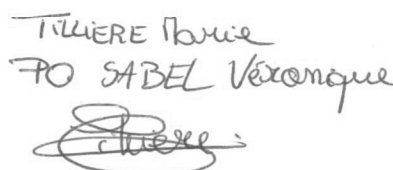 TILLIERE Marie
PO SABEL Véronique